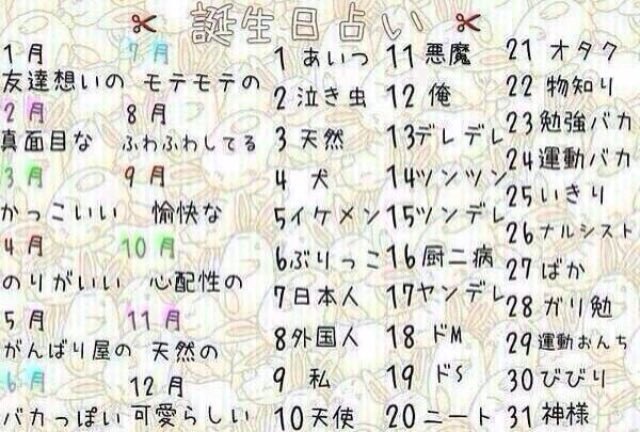 誕生日占い
1月
友達想いの
2月
真面目な
3月
かっこいい
4月
のりがいい
5月
がんばり屋の
6月
バカっぽい
7月
モテモテの
8月
ふわふわしてる
9月
愉快な
10月
心配性の
11月
天然の
12月
可愛らしい
1 あいつ
2 泣き虫
3 天然
4 犬
5 イケメン
6 ぶりっこ
7 日本人
8 外国人
9 私
10 天使
11 悪魔
12 俺
13 デレデレ
14 ツンツン
15 ツンデレ
16 厨二病
17 ヤンデレ
18 ドM
19 ドS
20 ニート
21 オタク
22 物知り
23 勉強バカ
24 運動バカ
25 いきり
26 ナルシスト
27 ばか
28 ガリ勉
29 運動おんち
30 びびり
31 神様